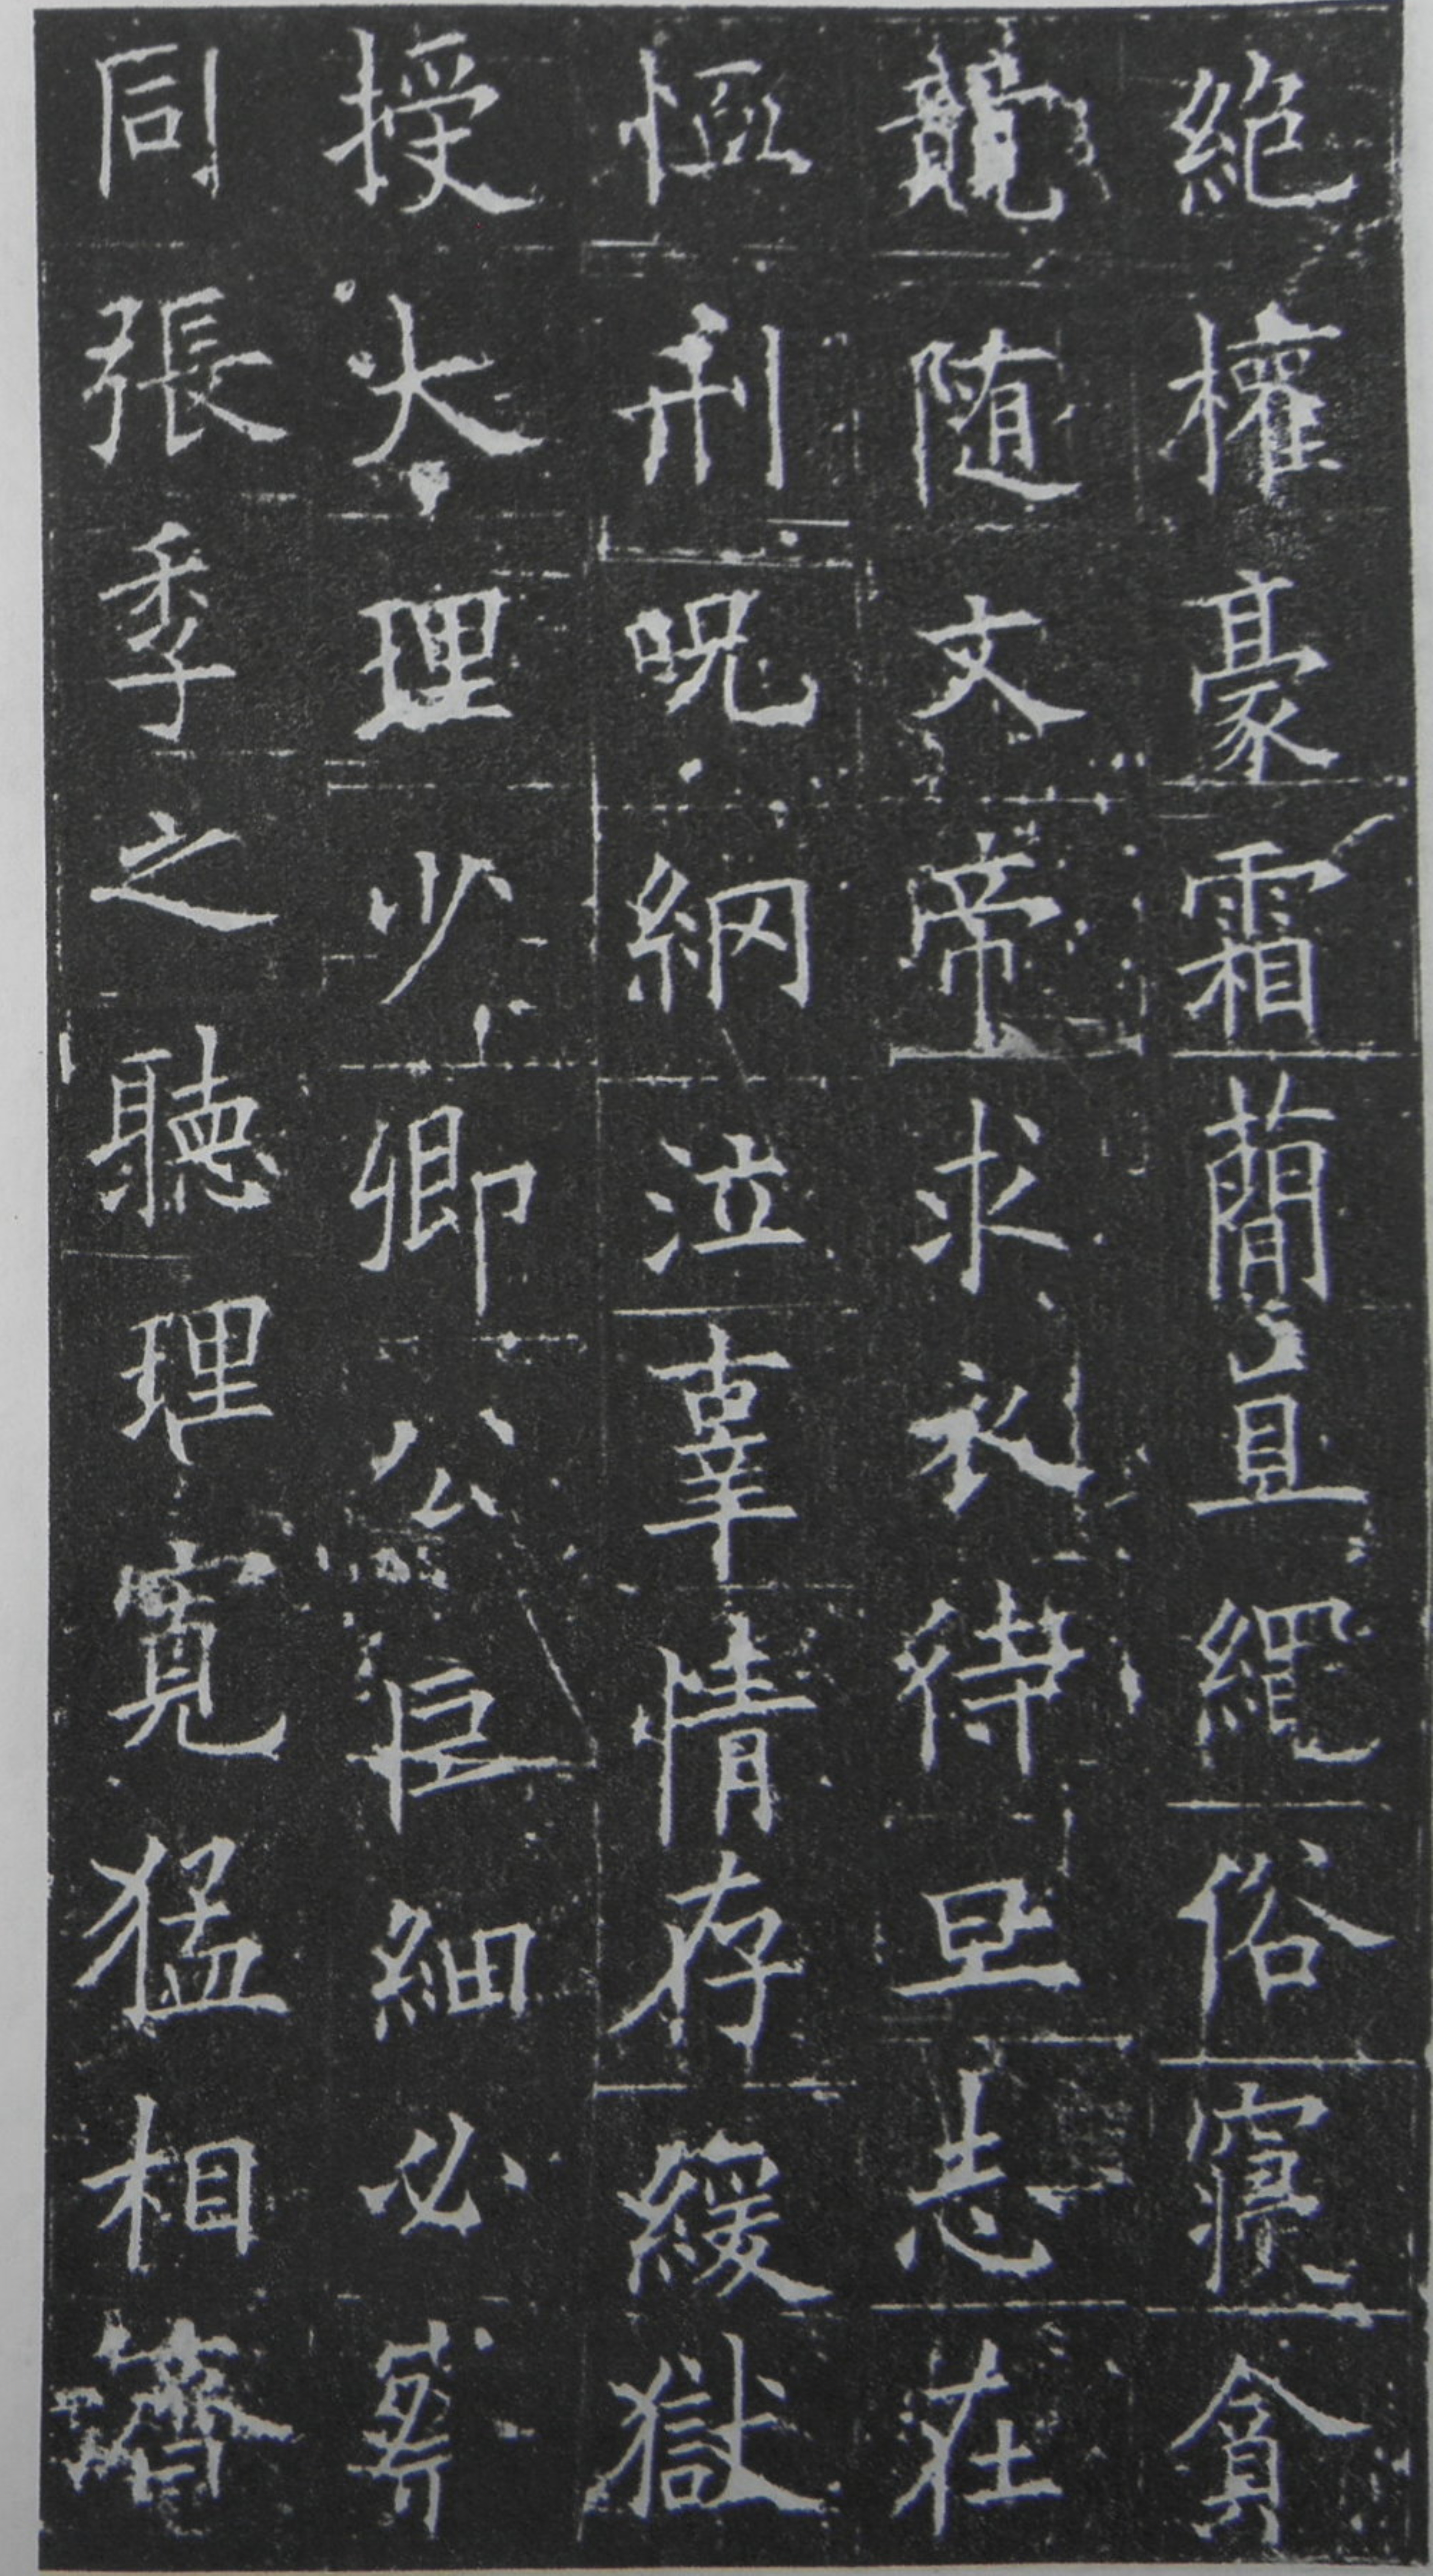 絶權豪霜簡且繩俗寢貪
競随文帝求衣待旦志在
恤刑呪網泣辜情存緩獄
授大理少卿公巨細必
同張季之聽理寬猛相濟